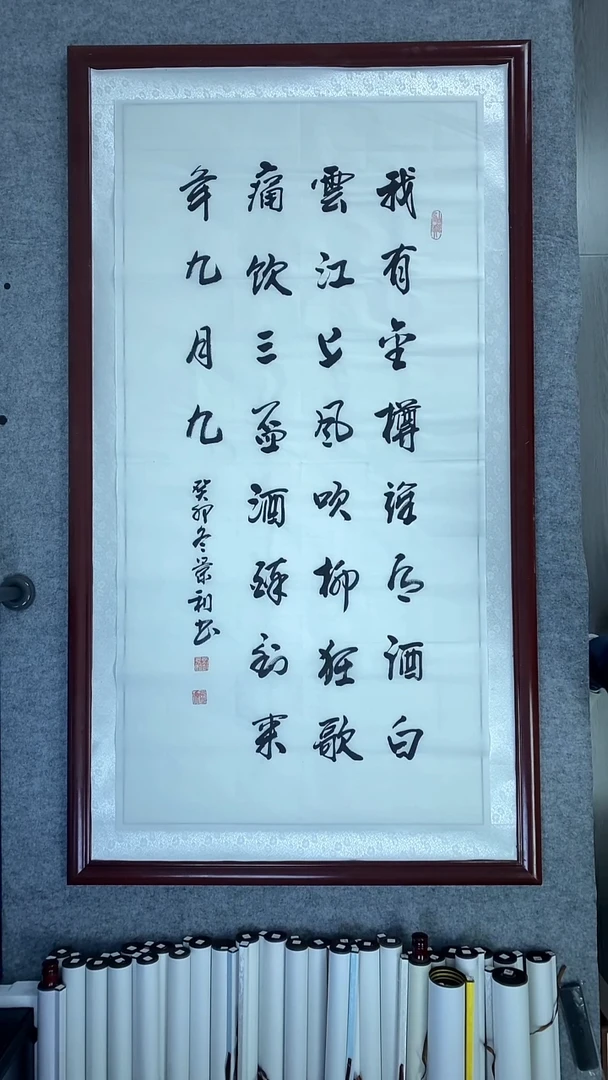 我有金樽誰酒白
雲江上風吹柳狂歌
痛饮三盃酒醉到来
年九月九
癸卯冬景利书